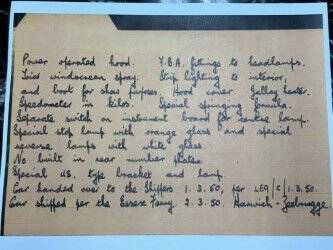 Power operated hood. Y.B.A. fittings to headlamps.
Trico windscreen spray. Strip lighting to interior,
and boot for show purposes. Hood cover. Gallay heater.
Speedometer in kilos. Special springing formula.
Separate switch on instrument board for centre lamp.
Special stop lamp with orange glass and special
reverse lamps with white glass.
No built in rear number plates.
Special U.S. type bracket and lamp.
Car handed over to the Shippers 1.3.50, per LEQ/C/1.3.50.
Car shipped per the Essex Ferry 2.3.50. Harwich - Zeebrugge